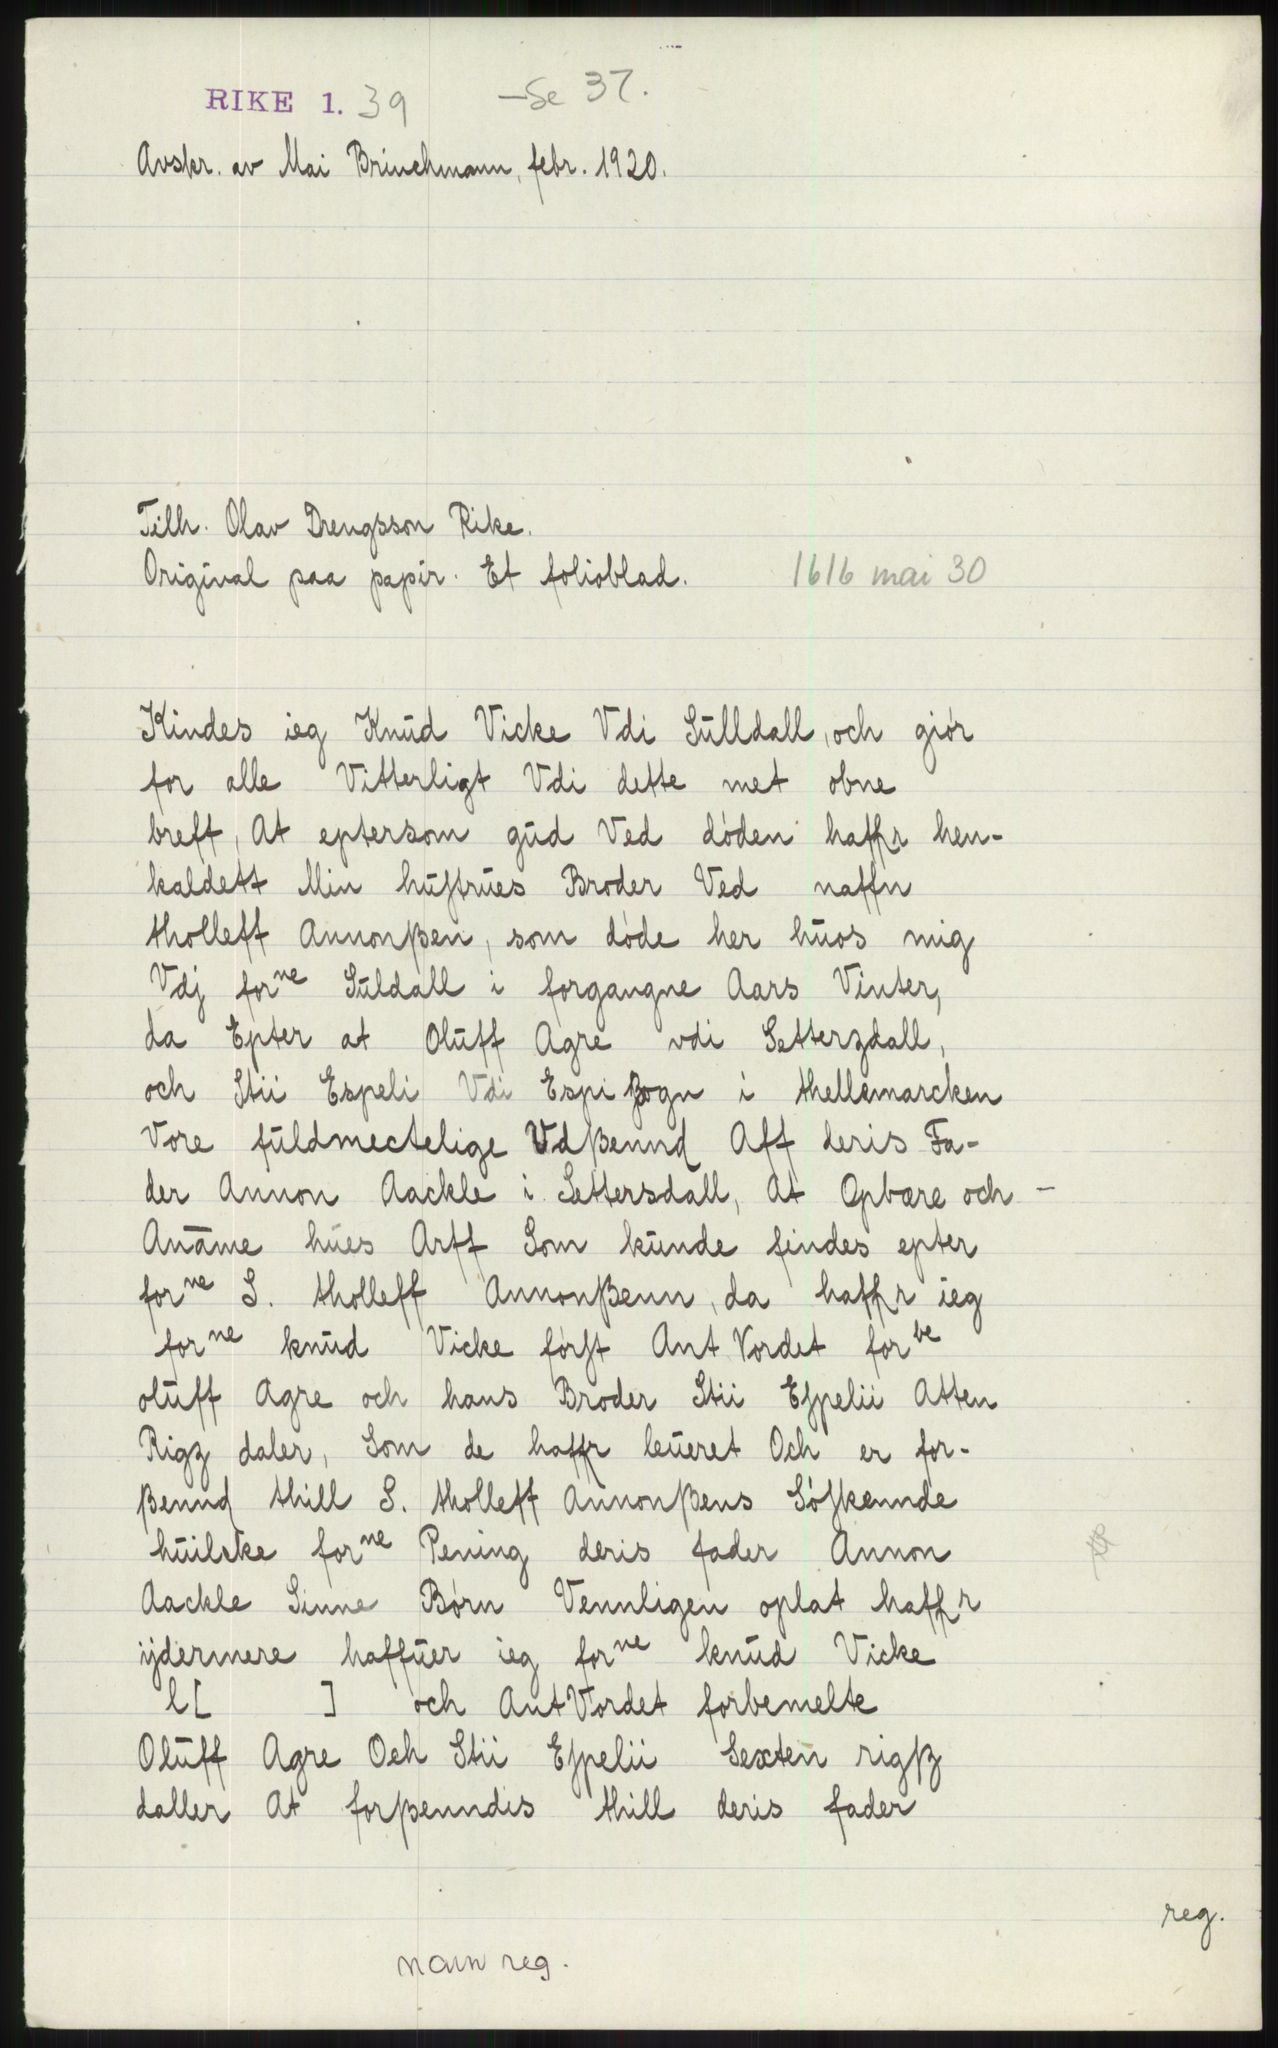 RIKE 1. 39 -Se 37.
Avskr. av Mai Brinchmann, febr. 1920.
Tilh. Olav Drengsson Rike.
Original paa papir. Et folioblad. 1616 mai 30
Kindes ieg Knud Vicke Vdi Sulldall, och giór
for alle Vitterligt Vdi dette met obne
breff, At eptersom gud Ved dóden haffr hen-
kaldett Min hustrues Broder Ved naffn
tholleff Annonßen, som dóde her huos mig
Vdj forne Suldall i forgangne Aars Vinter,
da Epter at Oluff Agre vdi Setterzdall,
och Stii Espeli Vdi Espi Zogn i thellemarcken
Vore fuldmectelige Vdßennd Aff deris Fa-
der Annon Aackle i Settersdall, At Opbære och -
Anāme hues Arff Som kunde findes epter
forne S. tholleff Annonßenn, da haffr ieg
forne knud Vicke fórst Ant Vordet forbe
oluff Agre och hans Broder Stii Espelii Atten
Rigz daler, Som de haffr leueret Och er for-
ßennd thill S. tholleff Annonßens Sóskennde
huilcke forne Pening deris fader Annon
Aackle Sinne Børn Vennligen oplat haffr
ijdermere haffuer ieg forne knud Vicke
l[ ] och AntVordet forbemelte
Oluff Agre Och Stii Espelii Sexten rigßz
daller At forßenndis thill deris fader
reg.
navn reg.